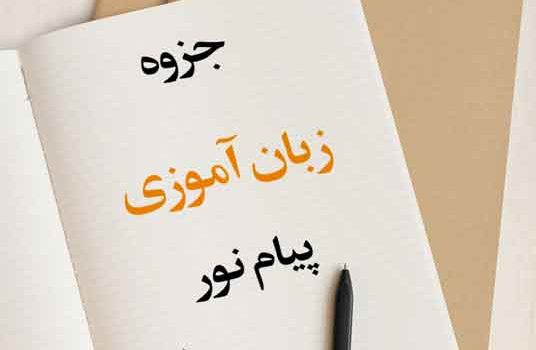 جزوه
زبان آموزی
پیام نور